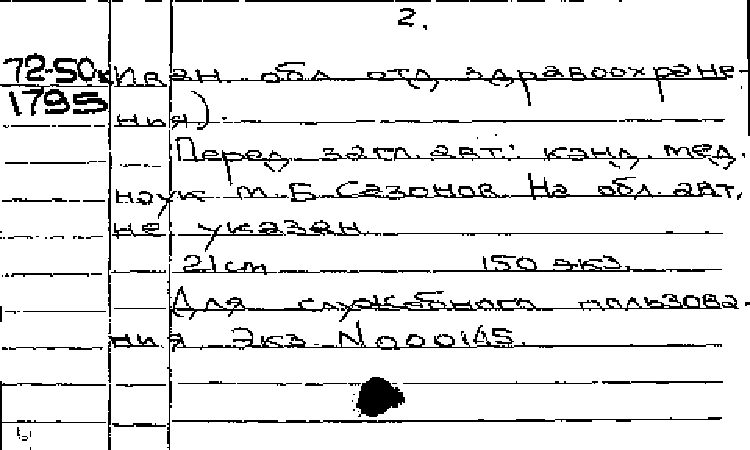 2.
72-50к Иван. обл. отд. здравоохране-
1795 ния).
Перед загл. авт.: канд. мед.
наук М.Б. Сазонов. На обл. авт.
не указан.
21 cm 150 экз.
Для служебного пользова-
ния Экз. N000145.